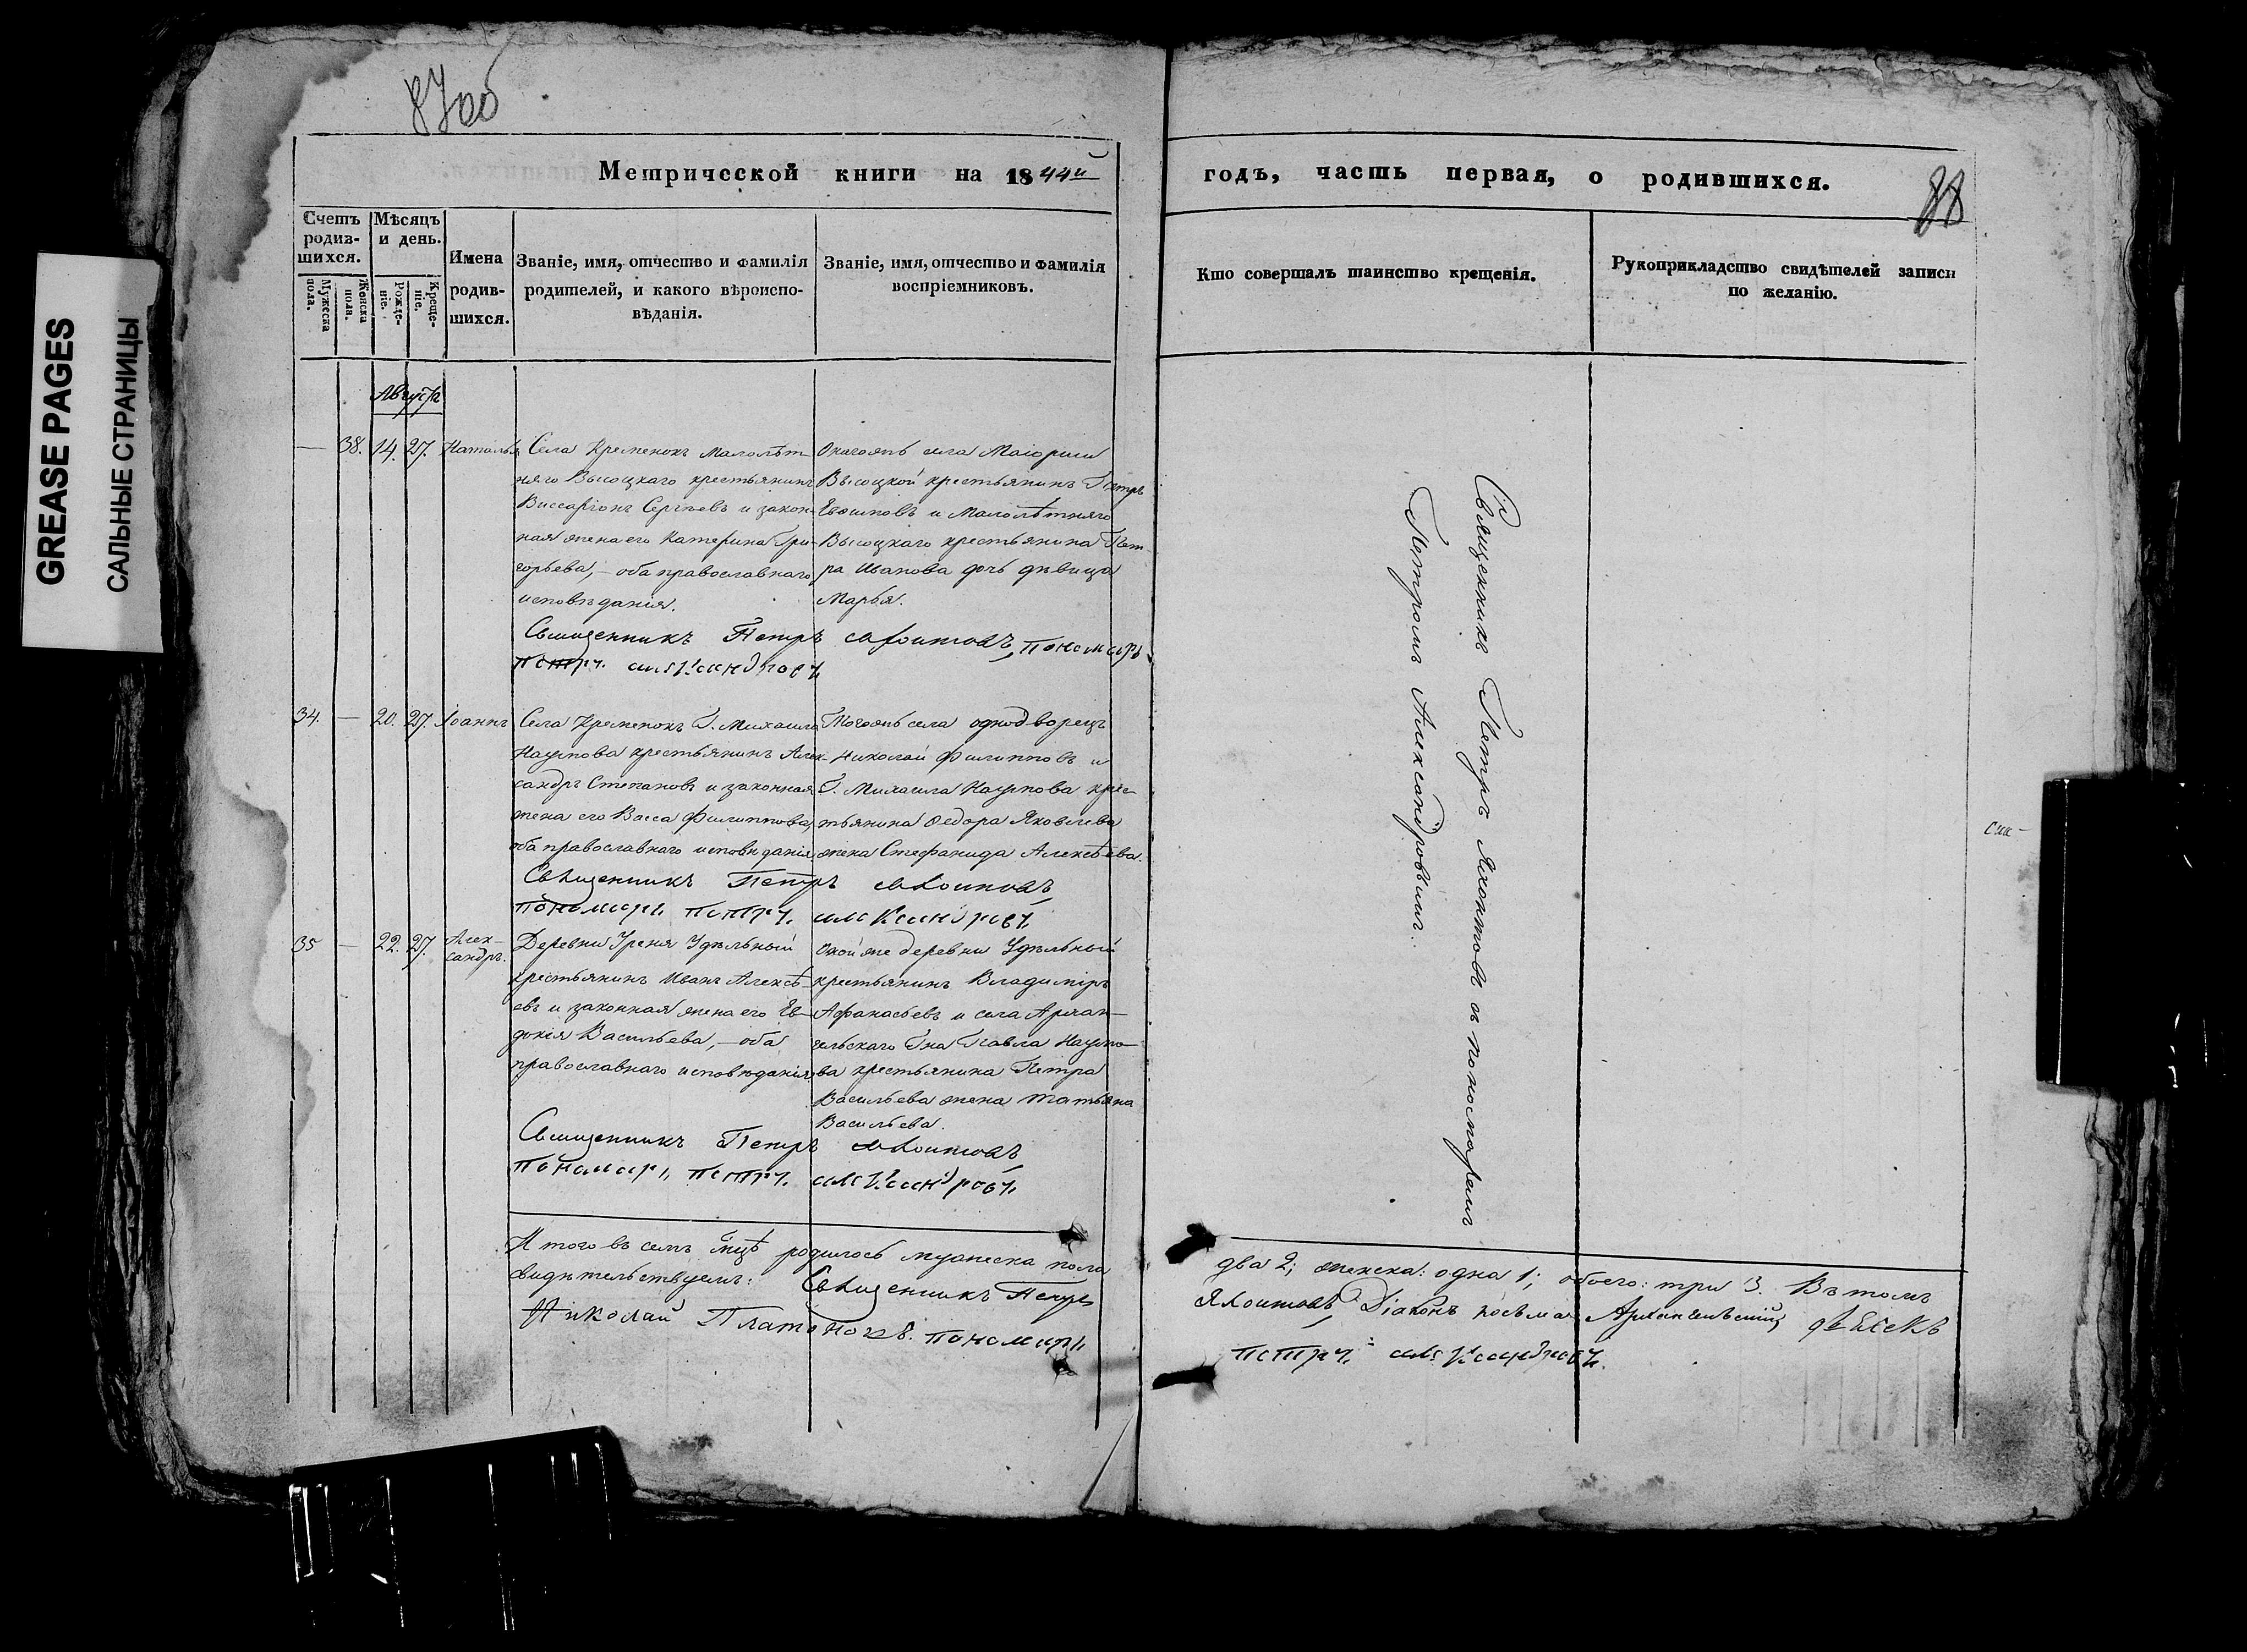 GREASE PAGES
САЛЬНЫЕ СТРАНИЦЫ
87об
88
Метрической книги на 1844й
годъ, часть первая, о родившихся.
Счетъ родив-шихся.
Мужеска пола.
Женска пола.
Мѣсяцъ и день.
Рожде-ніе.
Креще-ніе.
Имена родив-шихся.
Званіе, имя, отчество и фамилія
родителей, и какого вѣроиспо-
вѣданія.
Званіе, имя, отчество и фамилія
воспріемниковъ.
Кто совершалъ таинство крещенія.
Рукоприкладство свидѣтелей записи
по желанію.
Августа
— 38. 14. 27. Наталья
Села Кременокъ Малолѣт-
няго Высоцкаго крестьянинъ
Виссаріонъ Сергѣевъ и закон-
ная жена его Катерина Гри-
горьева, — оба православнаго
исповѣданія.
села Маіорши
Высоцкой крестьянинъ Петръ
Евфимовъ и Малолѣтняго
Высоцкаго крестьянина Пет-
ра Иванова дочь дѣвица
Марья.
Священникъ Петръ Яхонтовъ, пономарь
Петръ Александровъ
34. — 20. 27. Іоаннъ
Села Кременокъ Г. Михаила
Наумова крестьянинъ Алек-
сандръ Степановъ и законная
жена его Васса Филиппова,
оба православнаго исповѣданія
Тогожъ села однодворецъ
Николай Филипповъ и
Г. Михаила Наумова крес-
тьянина Федора Яковлева
жена Стефанида Алексѣева.
Священникъ Петръ Яхонтовъ,
пономарь Петръ Александровъ
35 — 22. 27. Алек-
сандръ.
Деревни Уреня Удѣльный
крестьянинъ Иванъ Алексѣ-
евъ и законная жена его Ев-
докія Васильева, — оба
православнаго исповѣданія,
Оной же деревни Удѣльный
крестьянинъ Владиміръ
Афанасьевъ и села Архан-
гельскаго Гна Павла Наумо-
ва крестьянина Петра
Васильева жена Татьяна
Васильева.
Священникъ Петръ Яхонтовъ,
пономарь Петръ Александровъ
Священникъ Петръ Яхонтовъ съ пономаремъ
Петромъ Александровымъ.
Итого въ семъ мцѣ родилось мужеска пола
два 2; женска: одна 1; обоего: три 3. Въ томъ
свидѣтельствуемъ: Священникъ Петръ
Яхонтовъ, Діаконъ Косьма Архангельскій, дьячекъ
Николай Платоновъ. пономарь
Петръ Александровъ.